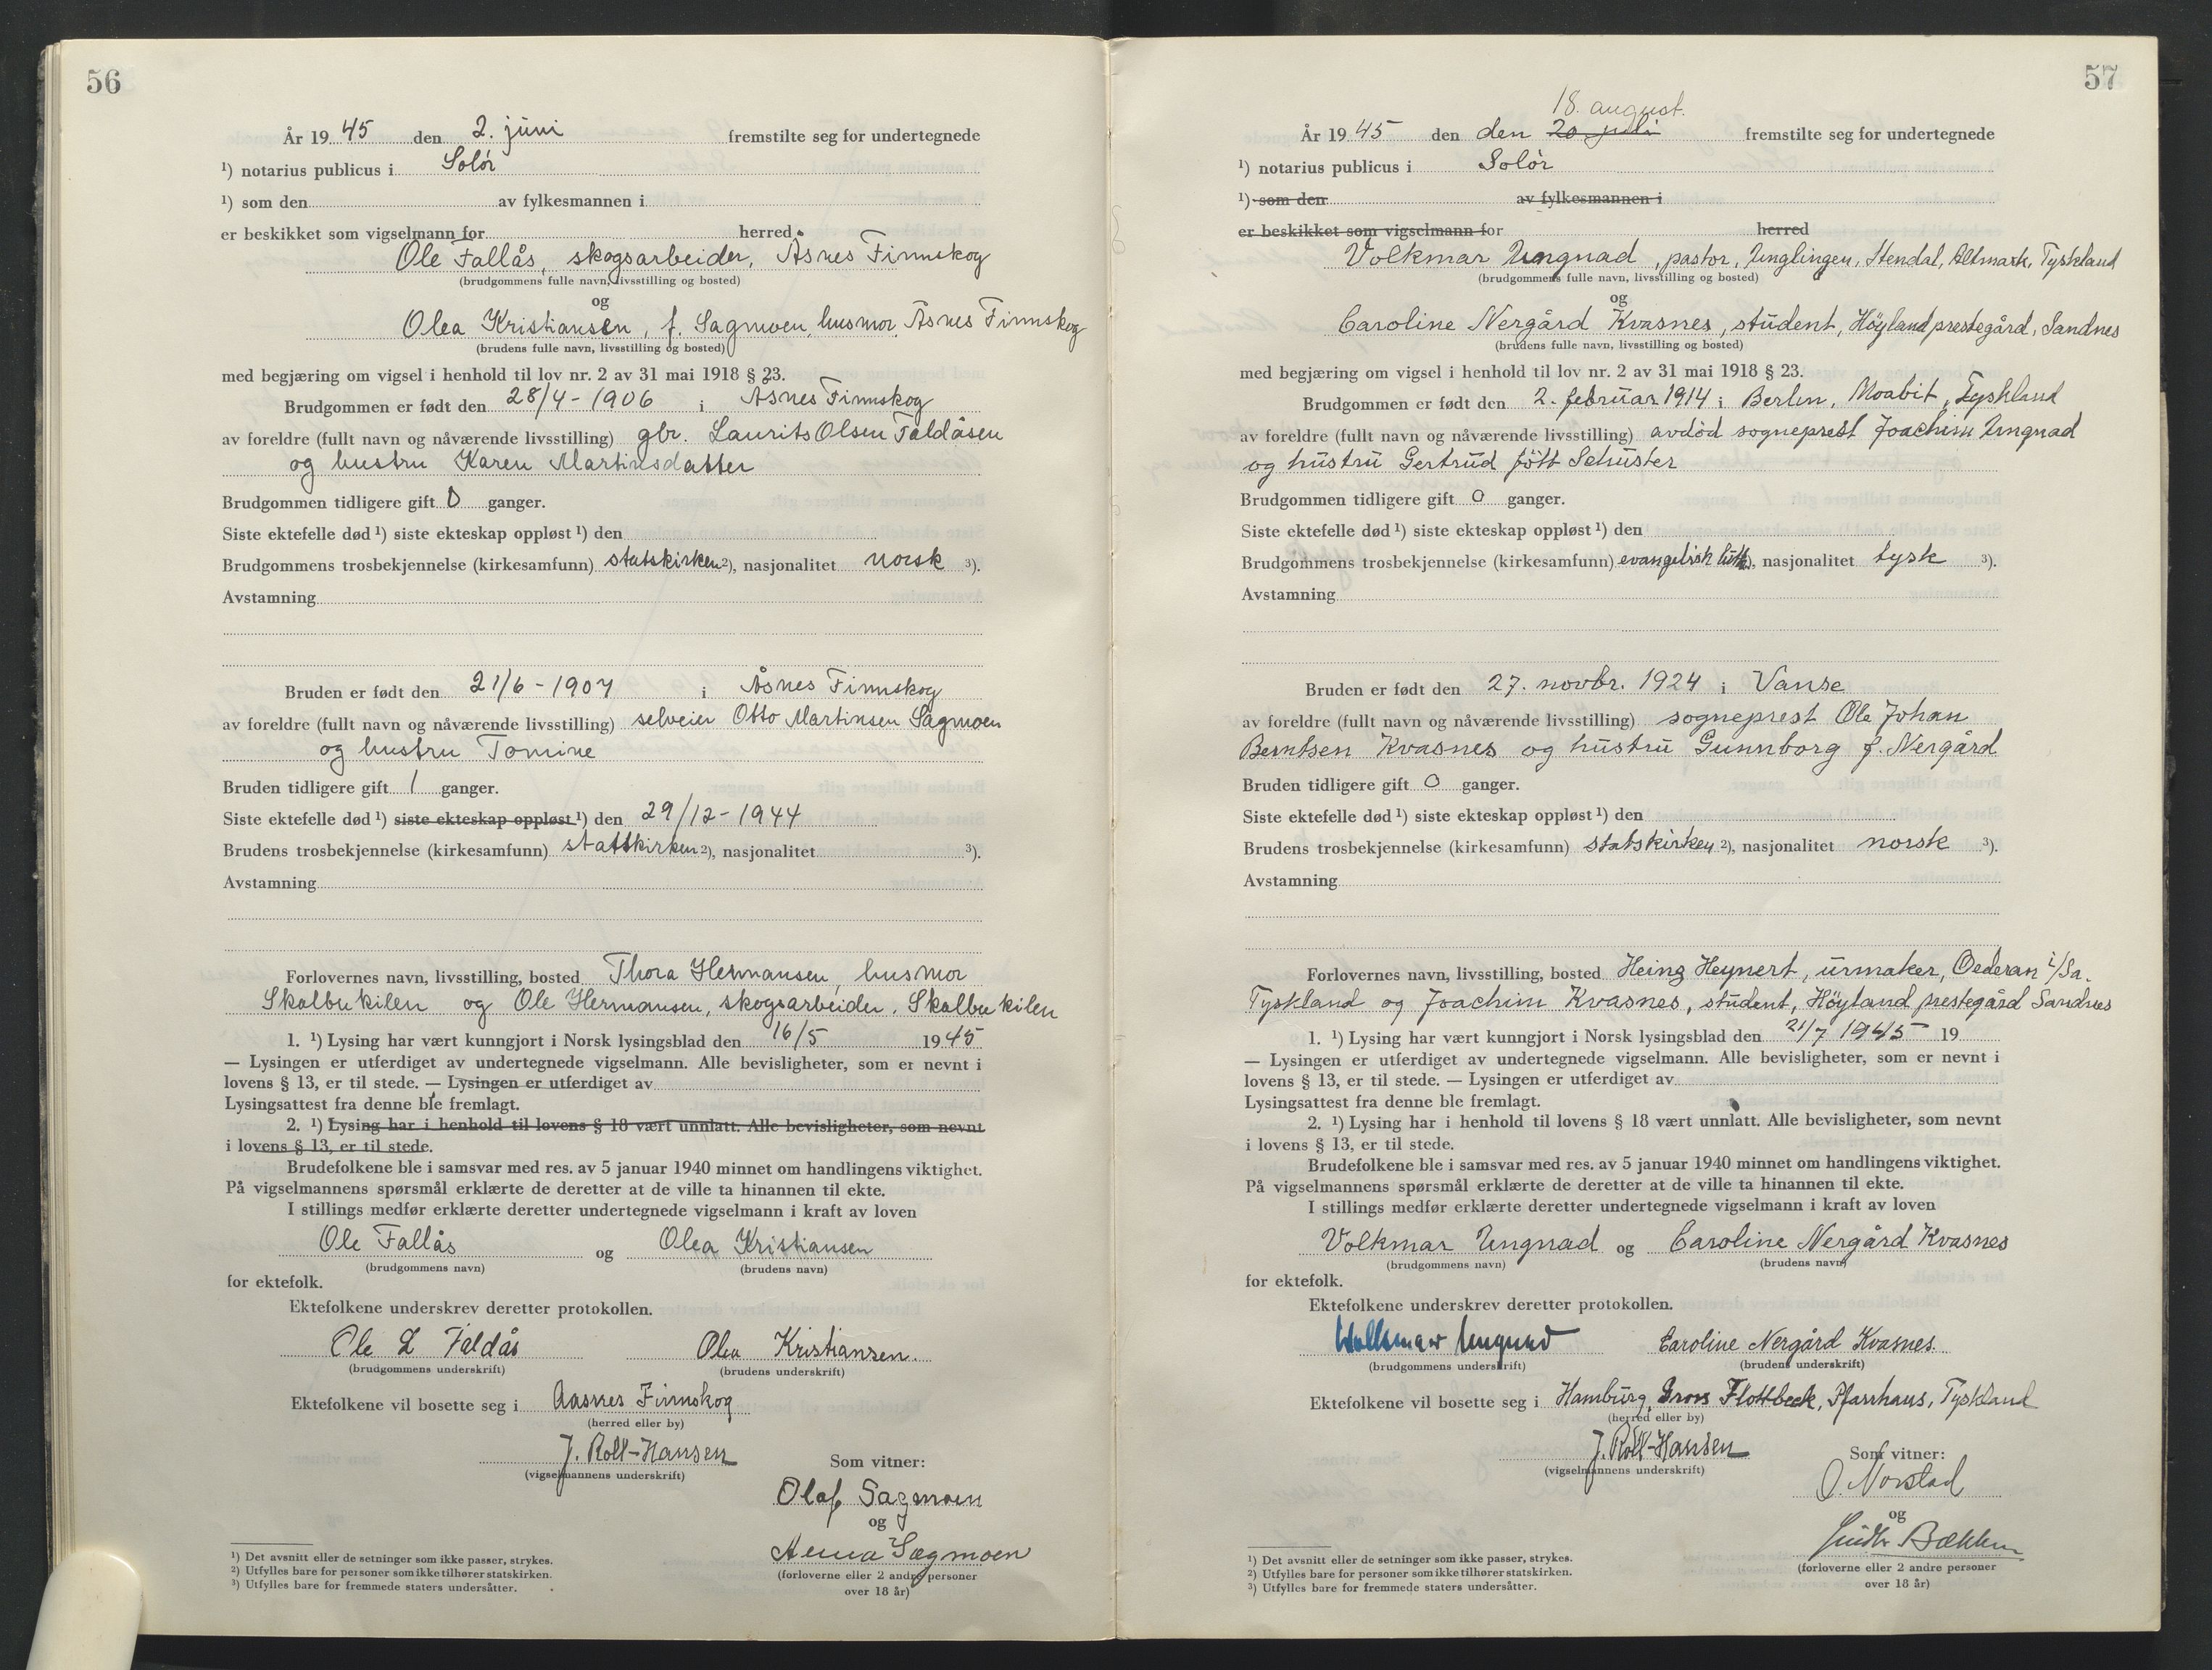 56
År 19 45 den 2. juni fremstilte seg for undertegnede
¹) notarius publicus i Solør
¹) som den av fylkesmannen i
er beskikket som vigselmann for herred.
Ole Fallås, skogsarbeider, Åsnes Finnskog
(brudgommens fulle navn, livsstilling og bosted)
og
Olea Kristiansen, f. Sagmoen, husmor, Åsnes Finnskog
(brudens fulle navn, livsstilling og bosted)
med begjæring om vigsel i henhold til lov nr. 2 av 31 mai 1918 § 23.
Brudgommen er født den 28/4-1906 i Åsnes Finnskog
av foreldre (fullt navn og nåværende livsstilling) gbr. Laurits Olsen Faldåsen
og hustru Karen Martinsdatter
Brudgommen tidligere gift 0 ganger.
Siste ektefelle død ¹) siste ekteskap oppløst ¹) den
Brudgommens trosbekjennelse (kirkesamfunn) statskirken ²), nasjonalitet norsk ³).
Avstamning
Bruden er født den 21/6-1907 i Åsnes Finnskog
av foreldre (fullt navn og nåværende livsstilling) selveier Otto Martinsen Sagmoen
og hustru Tomine
Bruden tidligere gift 1 ganger.
Siste ektefelle død ¹) siste ekteskap oppløst ¹) den 29/12-1944
Brudens trosbekjennelse (kirkesamfunn) statskirken ²), nasjonalitet ³).
Avstamning
Forlovernes navn, livsstilling, bosted Thora Hermansen, husmor
Skalbukilen og Ole Hermansen, skogsarbeider, Skalbukilen
1. ¹) Lysing har vært kunngjort i Norsk lysingsblad den 16/5 1945
— Lysingen er utferdiget av undertegnede vigselmann. Alle bevisligheter, som er nevnt i
lovens § 13, er til stede. — Lysingen er utferdiget av
Lysingsattest fra denne ble fremlagt.
2. ¹) Lysing har i henhold til lovens § 18 vært unnlatt. Alle bevisligheter, som nevnt
i lovens § 13, er til stede.
Brudefolkene ble i samsvar med res. av 5 januar 1940 minnet om handlingens viktighet.
På vigselmannens spørsmål erklærte de deretter at de ville ta hinannen til ekte.
I stillings medfør erklærte deretter undertegnede vigselmann i kraft av loven
Ole Fallås og Olea Kristiansen
(brudgommens navn) (brudens navn)
for ektefolk.
Ektefolkene underskrev deretter protokollen.
Ole L Faldås Olea Kristiansen.
(brudgommens underskrift) (brudens underskrift)
Ektefolkene vil bosette seg i Aasnes Finnskog
(herred eller by)
J. Roll-Hansen
(vigselmannens underskrift)
Som vitner:
Olaf Sagmoen
og
Anna Sagmoen
(forloverne eller 2 andre personer
over 18 år)
¹) Det avsnitt eller de setninger som ikke passer, strykes.
²) Utfylles bare for personer som ikke tilhører statskirken.
³) Utfylles bare for fremmede staters undersåtter.
57
18. august.
År 19 45 den den 20 juli fremstilte seg for undertegnede
¹) notarius publicus i Solør
¹) som den av fylkesmannen i
er beskikket som vigselmann for herred
Volkmar Ungnad, pastor, Unglingen, Stendal, Altmark, Tyskland
(brudgommens fulle navn, livsstilling og bosted)
og
Caroline Nergård Kvasnes, student, Höyland prestegård, Sandnes
(brudens fulle navn, livsstilling og bosted)
med begjæring om vigsel i henhold til lov nr. 2 av 31 mai 1918 § 23.
Brudgommen er født den 2. februar 1914 i Berlin, Moabit, Tyskland
av foreldre (fullt navn og nåværende livsstilling) avdød sogneprest Joachim Ungnad
og hustru Gertrud født Schuster
Brudgommen tidligere gift 0 ganger.
Siste ektefelle død ¹) siste ekteskap oppløst ¹) den
Brudgommens trosbekjennelse (kirkesamfunn) evangelisk luth. ²), nasjonalitet tysk ³).
Avstamning
Bruden er født den 27. novbr. 1924 i Vanse
av foreldre (fullt navn og nåværende livsstilling) sogneprest Ole Johan
Berntsen Kvasnes og hustru Gunnborg f. Nergård
Bruden tidligere gift 0 ganger.
Siste ektefelle død ¹) siste ekteskap oppløst ¹) den
Brudens trosbekjennelse (kirkesamfunn) statskirken ²), nasjonalitet norsk ³).
Avstamning
Forlovernes navn, livsstilling, bosted Heinz Heynert, urmaker, Oederan i/Sa.
Tyskland og Joachim Kvasnes, student, Höyland prestegård Sandnes
1. ¹) Lysing har vært kunngjort i Norsk lysingsblad den 21/7 1945 19
— Lysingen er utferdiget av undertegnede vigselmann. Alle bevisligheter, som er nevnt i
lovens § 13, er til stede. — Lysingen er utferdiget av
Lysingsattest fra denne ble fremlagt.
2. ¹) Lysing har i henhold til lovens § 18 vært unnlatt. Alle bevisligheter, som nevnt
i lovens § 13, er til stede.
Brudefolkene ble i samsvar med res. av 5 januar 1940 minnet om handlingens viktighet.
På vigselmannens spørsmål erklærte de deretter at de ville ta hinannen til ekte.
I stillings medfør erklærte deretter undertegnede vigselmann i kraft av loven
Volkmar Ungnad og Caroline Nergård Kvasnes
(brudgommens navn) (brudens navn)
for ektefolk.
Ektefolkene underskrev deretter protokollen.
Volkmar Ungnad Caroline Nergård Kvasnes.
(brudgommens underskrift) (brudens underskrift)
Ektefolkene vil bosette seg i Hamburg, Gross Flottbeck, Pfarrhaus, Tyskland
(herred eller by)
J. Roll-Hansen
(vigselmannens underskrift)
Som vitner:
O. Norstad
og
Bækken
(forloverne eller 2 andre personer
over 18 år)
¹) Det avsnitt eller de setninger som ikke passer, strykes.
²) Utfylles bare for personer som ikke tilhører statskirken.
³) Utfylles bare for fremmede staters undersåtter.